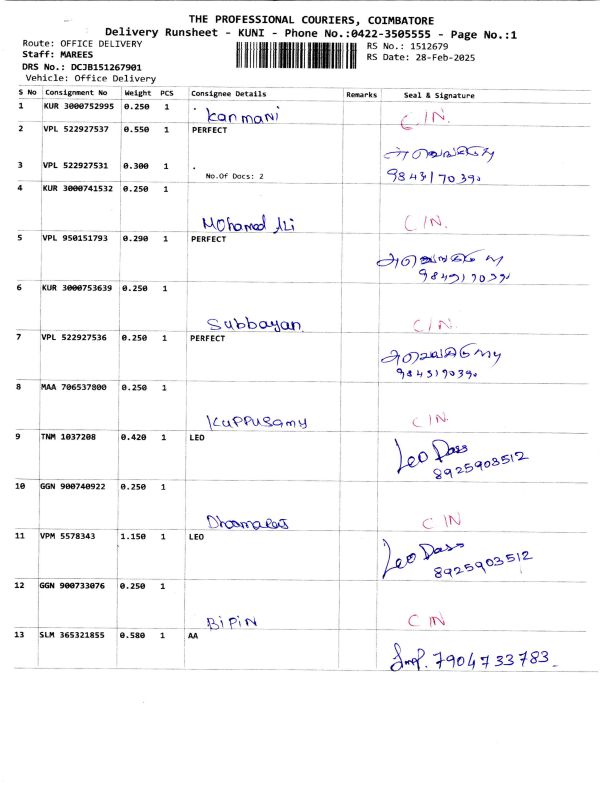 THE PROFESSIONAL COURIERS, COIMBATORE
Delivery Runsheet - KUNI - Phone No.:0422-3505555 - Page No.:1
Route: OFFICE DELIVERY
RS No.: 1512679
Staff: MAREES
RS Date: 28-Feb-2025
DRS No.: DCJB151267901
Vehicle: Office Delivery
S No Consignment No Weight PCS Consignee Details Remarks Seal & Signature
1 KUR 3000752995 0.250 1 Kanmani C/N.
2 VPL 522927537 0.550 1 PERFECT
3 VPL 522927531 0.300 1 .
No.Of Docs: 2
9843170390
4 KUR 3000741532 0.250 1
Mohamed Ali C/N.
5 VPL 950151793 0.290 1 PERFECT
9843170390
6 KUR 3000753639 0.250 1
Subbayan C/N.
7 VPL 522927536 0.250 1 PERFECT
8 MAA 706537800 0.250 1
Kuppusamy C/N.
9 TNM 1037208 0.420 1 LEO Leo Dass
8925903512
10 GGN 900740922 0.250 1
C/N
11 VPM 5578343 1.150 1 LEO Leo Dass
8925903512
12 GGN 900733076 0.250 1
BiPiN C/N.
13 SLM 365321855 0.580 1 AA
7904733783.